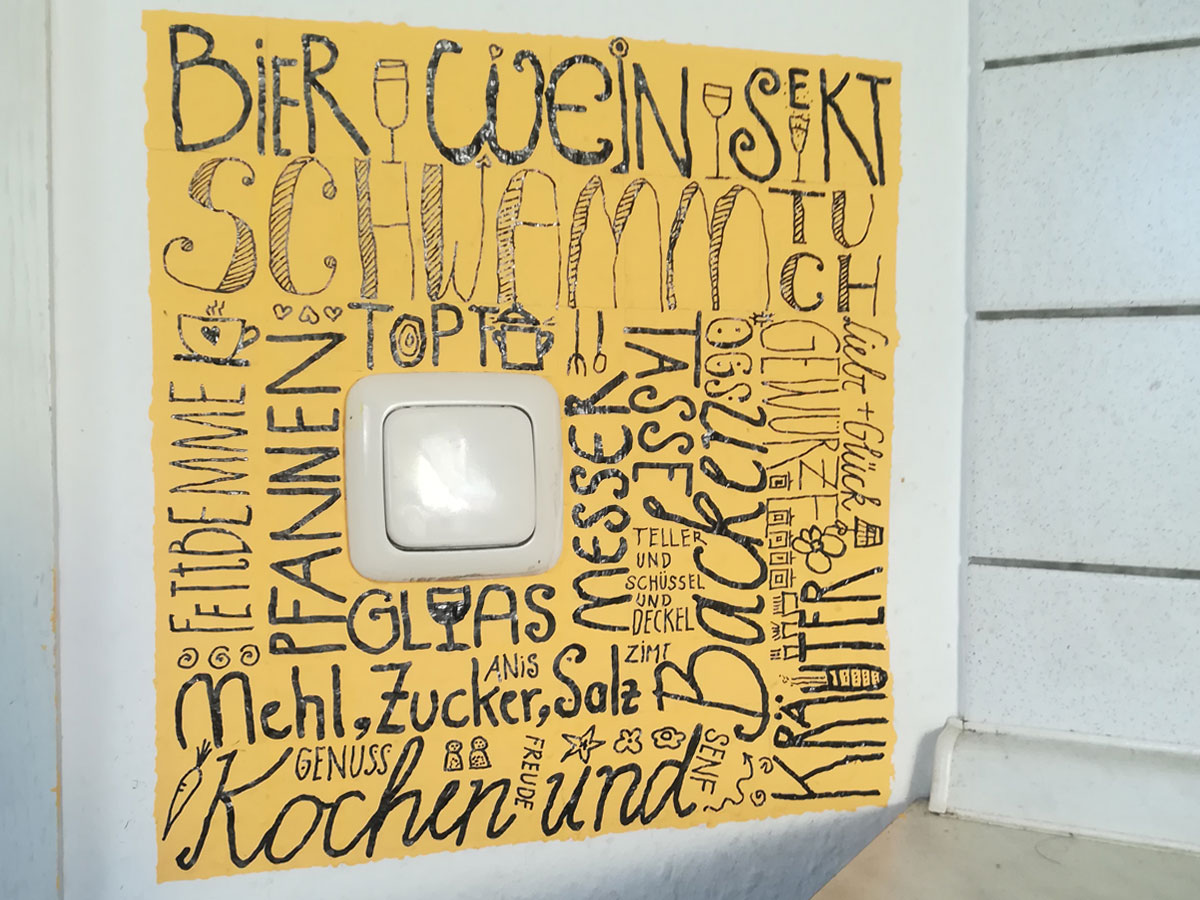 BiER WEiN SEKT
SCHWAMM
TUCH
TOPT
FETTBEMME
PFANNEN
MESSER
TASSE
GEWÜRZE
liebe + Glück
TELLER
UND
SCHÜSSEL
UND
DECKEL
Backen
KRÄUTER
GLAS
ANiS
ZIMT
Mehl, Zucker, Salz
GENUSS
FREUDE
SENF
Kochen und